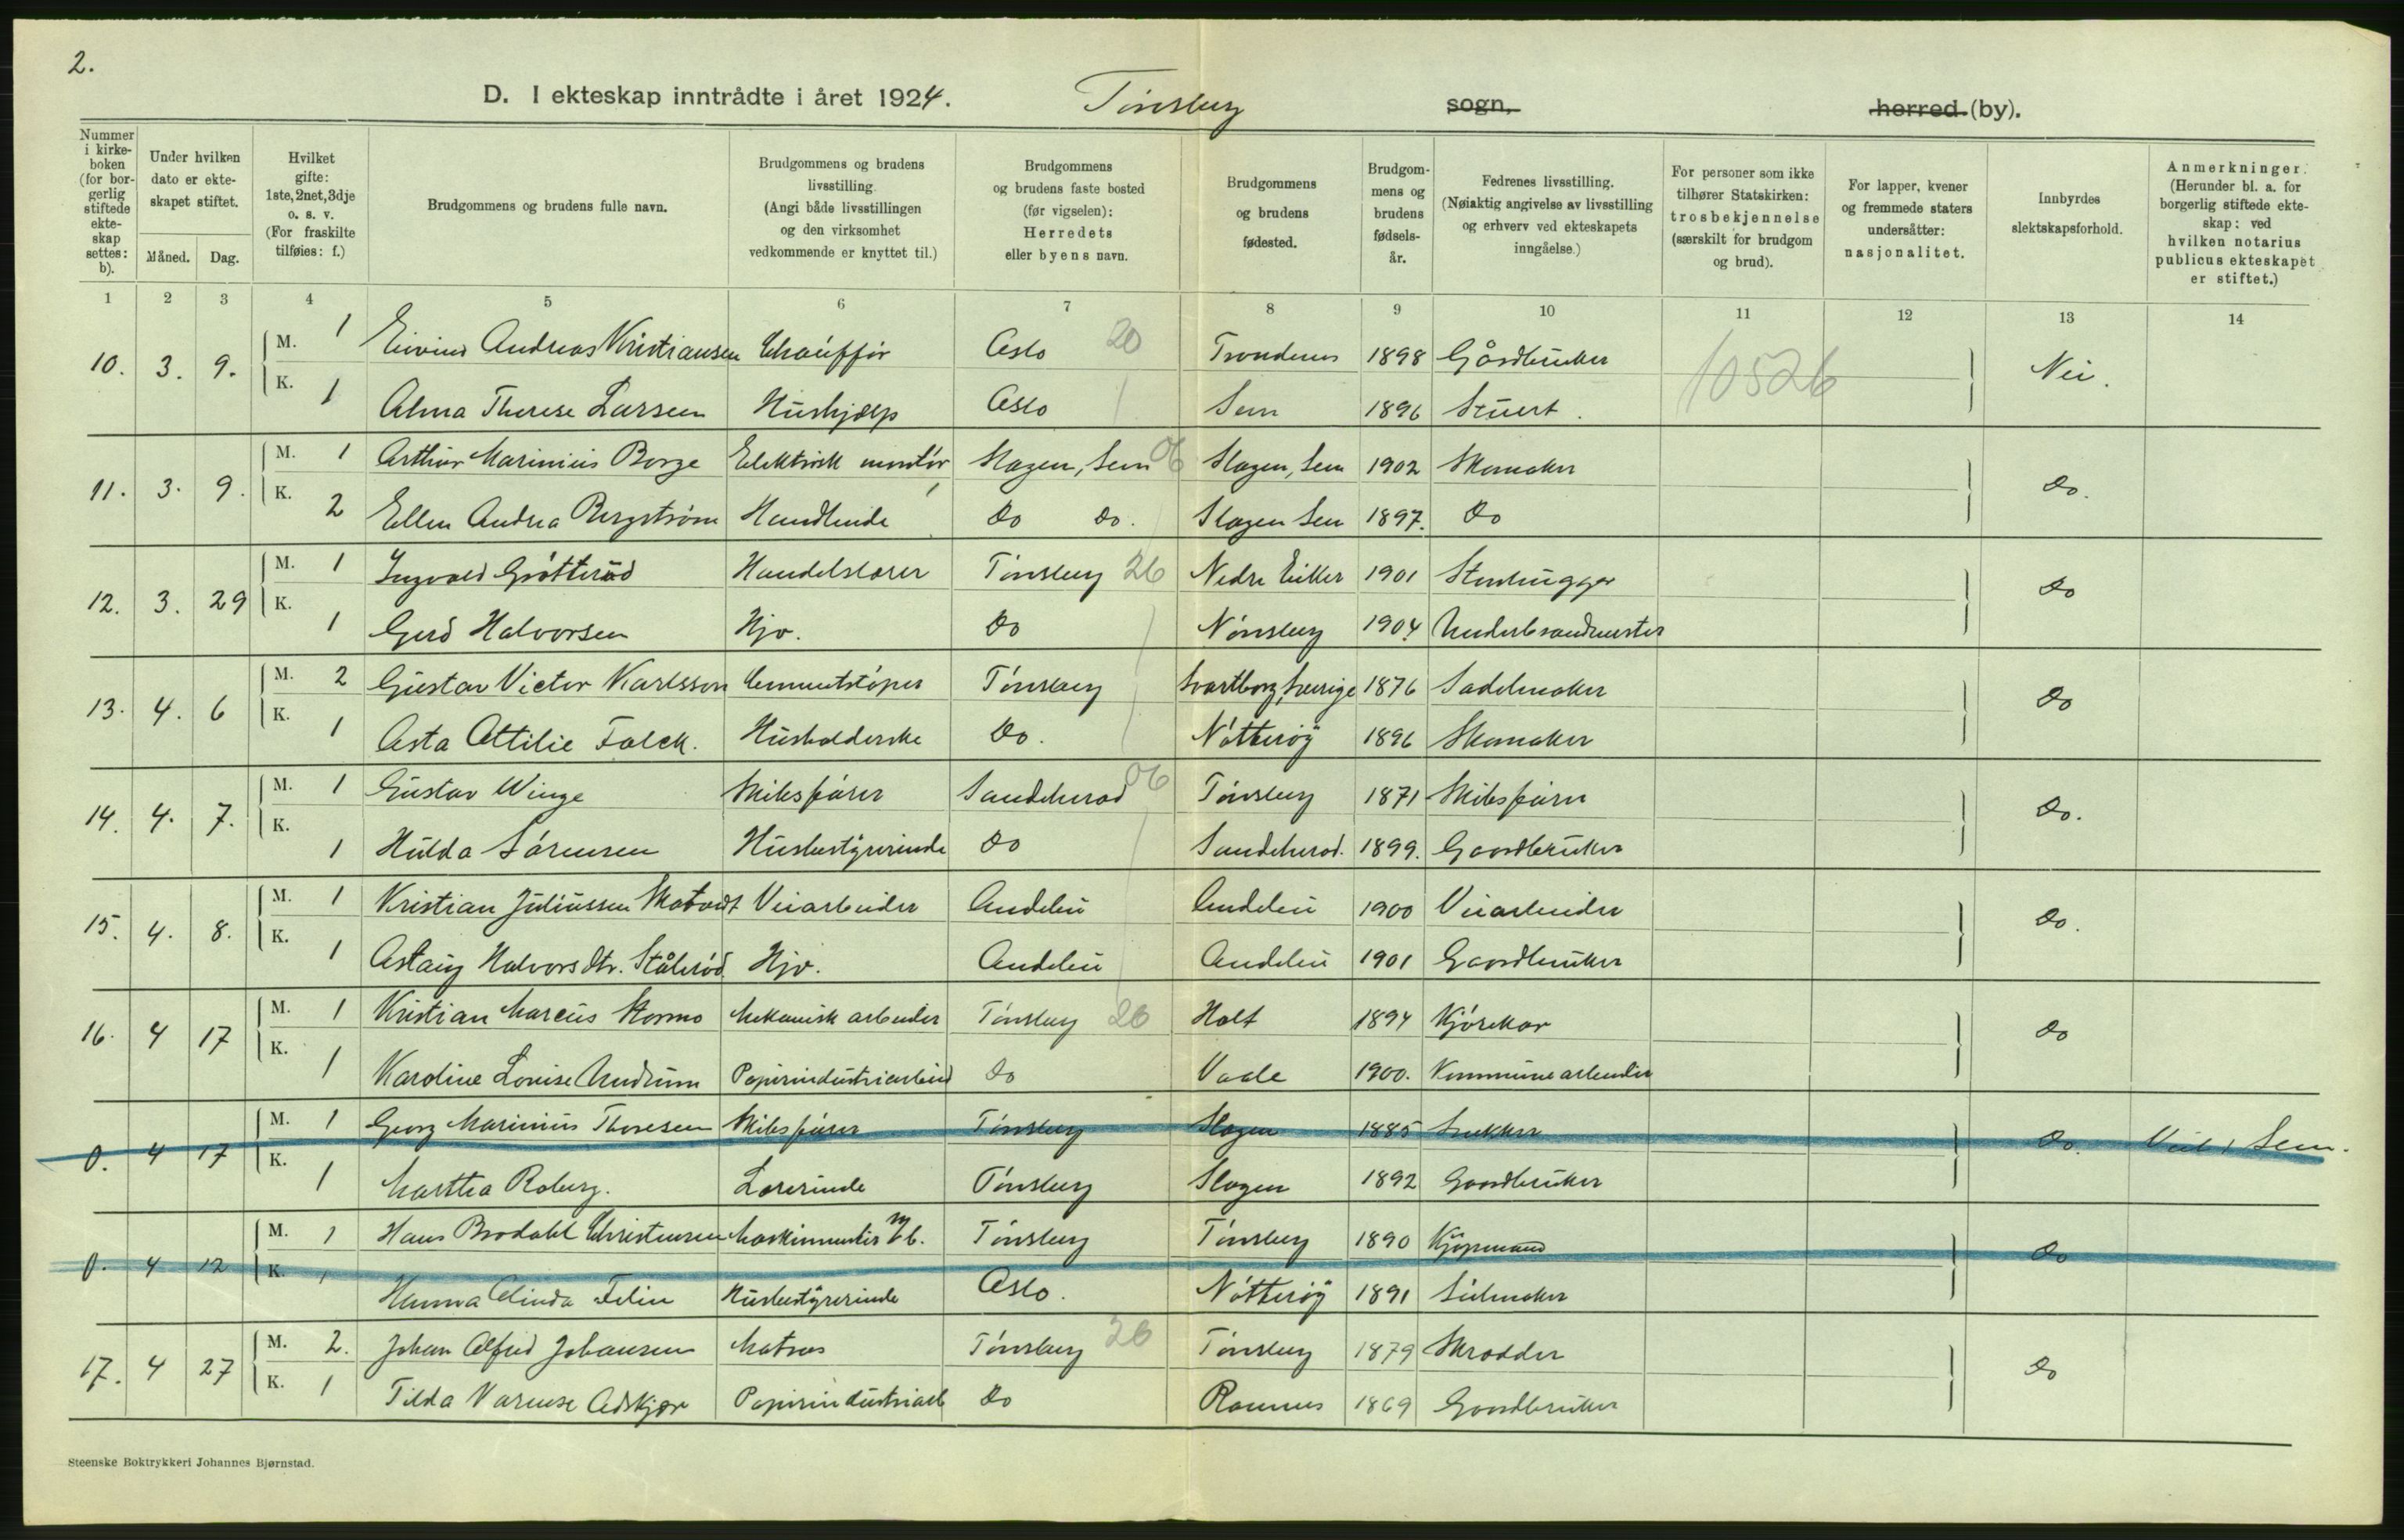 2.
D. I ekteskap inntrådte i året 1924. Tönsberg sogn, herred. (by).
Nummer i kirke-boken (for bor-gerlig stiftede ekte-skap settes: b).
Under hvilken dato er ekte-skapet stiftet.
Måned. Dag.
Hvilket gifte: 1ste, 2net, 3dje o. s. v. (For fraskilte tilføies: f.)
Brudgommens og brudens fulle navn.
Brudgommens og brudens livsstilling. (Angi både livsstillingen og den virksomhet vedkommende er knyttet til.)
Brudgommens og brudens faste bosted (før vigselen): Herredets eller byens navn.
Brudgommens og brudens fødested.
Brudgom-mens og brudens fødsels-år.
Fedrenes livsstilling. (Nøiaktig angivelse av livsstilling og erhverv ved ekteskapets inngåelse.)
For personer som ikke tilhører Statskirken: trosbekjennelse (særskilt for brudgom og brud).
For lapper, kvener og fremmede staters undersåtter: nasjonalitet.
Innbyrdes slektskapsforhold.
Anmerkninger. (Herunder bl. a. for borgerlig stiftede ekte-skap: ved hvilken notarius publicus ekteskapet er stiftet.)
1 2 3 4 5 6 7 8 9 10 11 12 13 14
10. 3. 9. M. 1 Eivind Andreas Kristiansen Chaufför Oslo 20 Trondenes 1898 Gårdbruker 10526 Nei.
K. 1 Alma Therese Larsen Hushjælp Oslo Sem 1896 Stuert.
11. 3. 9. M. 1 Arthur Marinius Borge Elektrisk montör Slagen, Sem 06 Slagen, Sem 1902 Skomaker Do.
K. 2 Ellen Andrea Bergström Handlende Do Do. Slagen Sem 1897. Do
12. 3. 29 M. 1 Ingvald Grötterud Handelslærer Tönsberg 26 Nedre Eiker 1901 Stenhugger Do
K. 1 Gerd Halvorsen Hjv. Do Tönsberg 1904 Underbrandmester
13. 4. 6 M. 2 Gustav Victor Karlsson Cementstöper Tönsberg Svartborg, Sverige 1876 Sadelmaker Do
K. 1 Asta Ottilie Falck. Husholderske Do. Nötteröy 1896 Skomaker
14. 4. 7. M. 1 Gustav Winge Skibsförer Sandeherad 06 Tönsberg 1871 Skibsförer Do.
K. 1 Hulda Sörensen Husbestyrerinde Do Sandeherad. 1899. Gaardbruker
15. 4. 8. M. 1 Kristian Juliussen Veiarbeider Andebu Andebu 1900 Veiarbeider Do.
K. 1 Aslaug Halvorsdtr. Stålerød Hjv. Andebu Andebu 1901 Gaardbruker
16. 4 17 M. 1 Kristian Marcus Mekanisk arbeider Tönsberg 26 Holt 1894 Kjörekar Do
K. 1 Karoline Lovise Undrum Papirindustriarbeid Do Vaale 1900. Kommunearbeider
0. 4 17 M. 1 Georg Marinius Thoresen Skibsförer Tönsberg Slagen 1885 Snekker Do. Viet i Sem.
K. 1 Martha Roberg. Lærerinde Tönsberg Slagen 1892 Gaardbruker
0. 4 12 M. 1 Hans Brodahl Christensen Maskinmester Tönsberg Tönsberg 1890 Kjöpmand Do
K. 1 Hanna Elinda Husbestyrerinde Oslo. Nötteröy 1891 Seilmaker
17. 4 27 M. 2. Johan Alfred Johansen Matros Tönsberg 26 Tönsberg 1879 Skrædder Do
K. 1 Tilda Varense Adskjær Papirindustriarb Do Ramnes 1869 Gaardbruker
Steenske Boktrykkeri Johannes Bjørnstad.